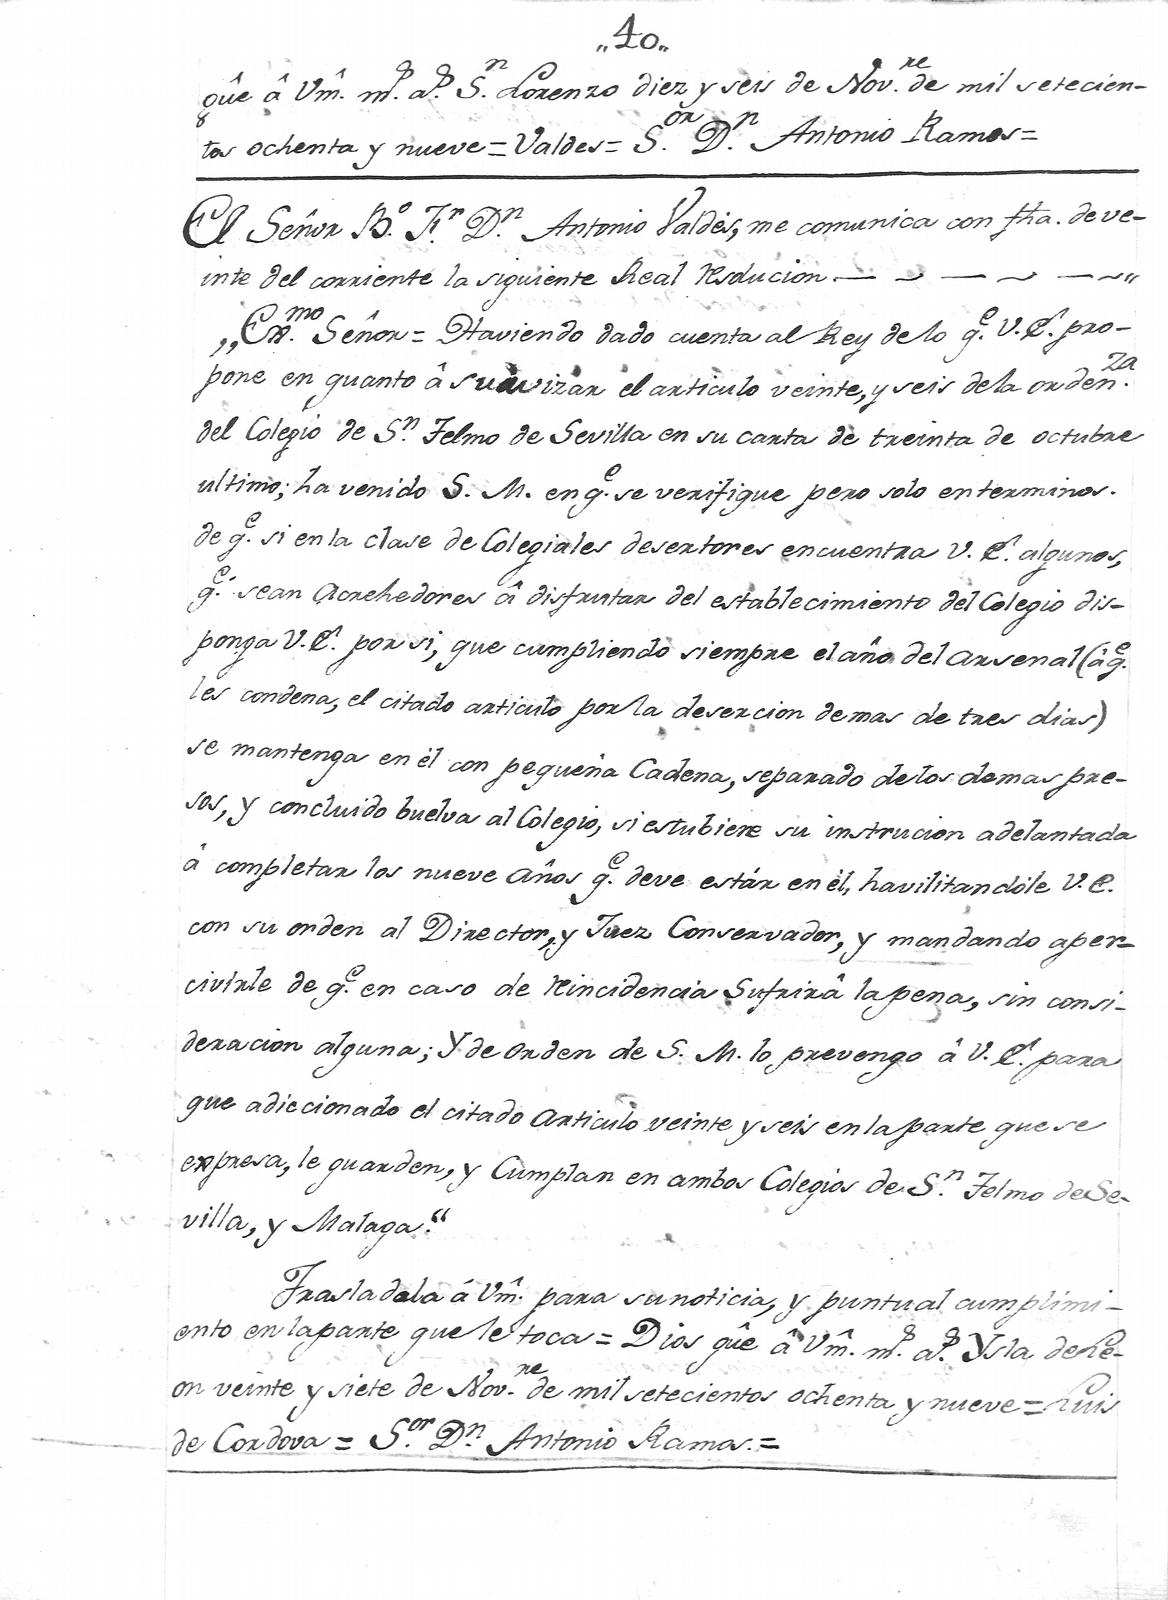 „40„
gûe â Vm̂. m.s a.s S.n Lorenzo diez y seis de Nov.re de mil setecien-
tos ochenta y nueve = Valdes = S.or D.n Antonio Ramos =
El Señor B.o F.r D.n Antonio Valdés, me comunica con fha. de ve-
inte del corriente la siguiente Real resolucion
„Ex.mo Señor = Haviendo dado cuenta al Rey de lo q.e V. E. pro-
pone en quanto â suavizar el articulo veinte, y seis de la orden.za
del Colegio de S.n Telmo de Sevilla en su carta de treinta de octubre
ultimo; ha venido S. M. en q.e se verifique pero solo en terminos.
de q.e si en la clase de Colegiales desertores encuentra V. E. algunos,
q.e sean Acrehedores â disfrutar del establecimiento del Colegio dis-
ponga V. E. por si, que cumpliendo siempre el año del Arsenal (â q.e
les condena, el citado articulo por la desercion demas de tres dias)
se mantenga en él con pequeña Cadena, separado de los demas pre-
sos, y concluido buelva al Colegio, si estubiere su instrucion adelantada
â completar los nueve años q.e deve estár en él, havilitandole V. E.
con su orden al Director, y Juez Conservador, y mandando aper-
civirle de q.e en caso de reincidencia Sufrirâ la pena, sin consi-
deracion alguna; Y de orden de S. M. lo prevengo â V. E. para
que adiccionado el citado Articulo veinte y seis en la parte que se
expresa, le guarden, y Cumplan en ambos Colegios de S.n Telmo de Se-
villa, y Malaga."
Trasladola á Vm̂. para su noticia, y puntual cumplimi-
ento en la parte que le toca = Dios gûe â Vm̂. m.s a.s Ysla de Le-
on veinte y siete de Nov.re de mil setecientos ochenta y nueve = Luis
de Cordova = S.or D.n Antonio Ramos. =